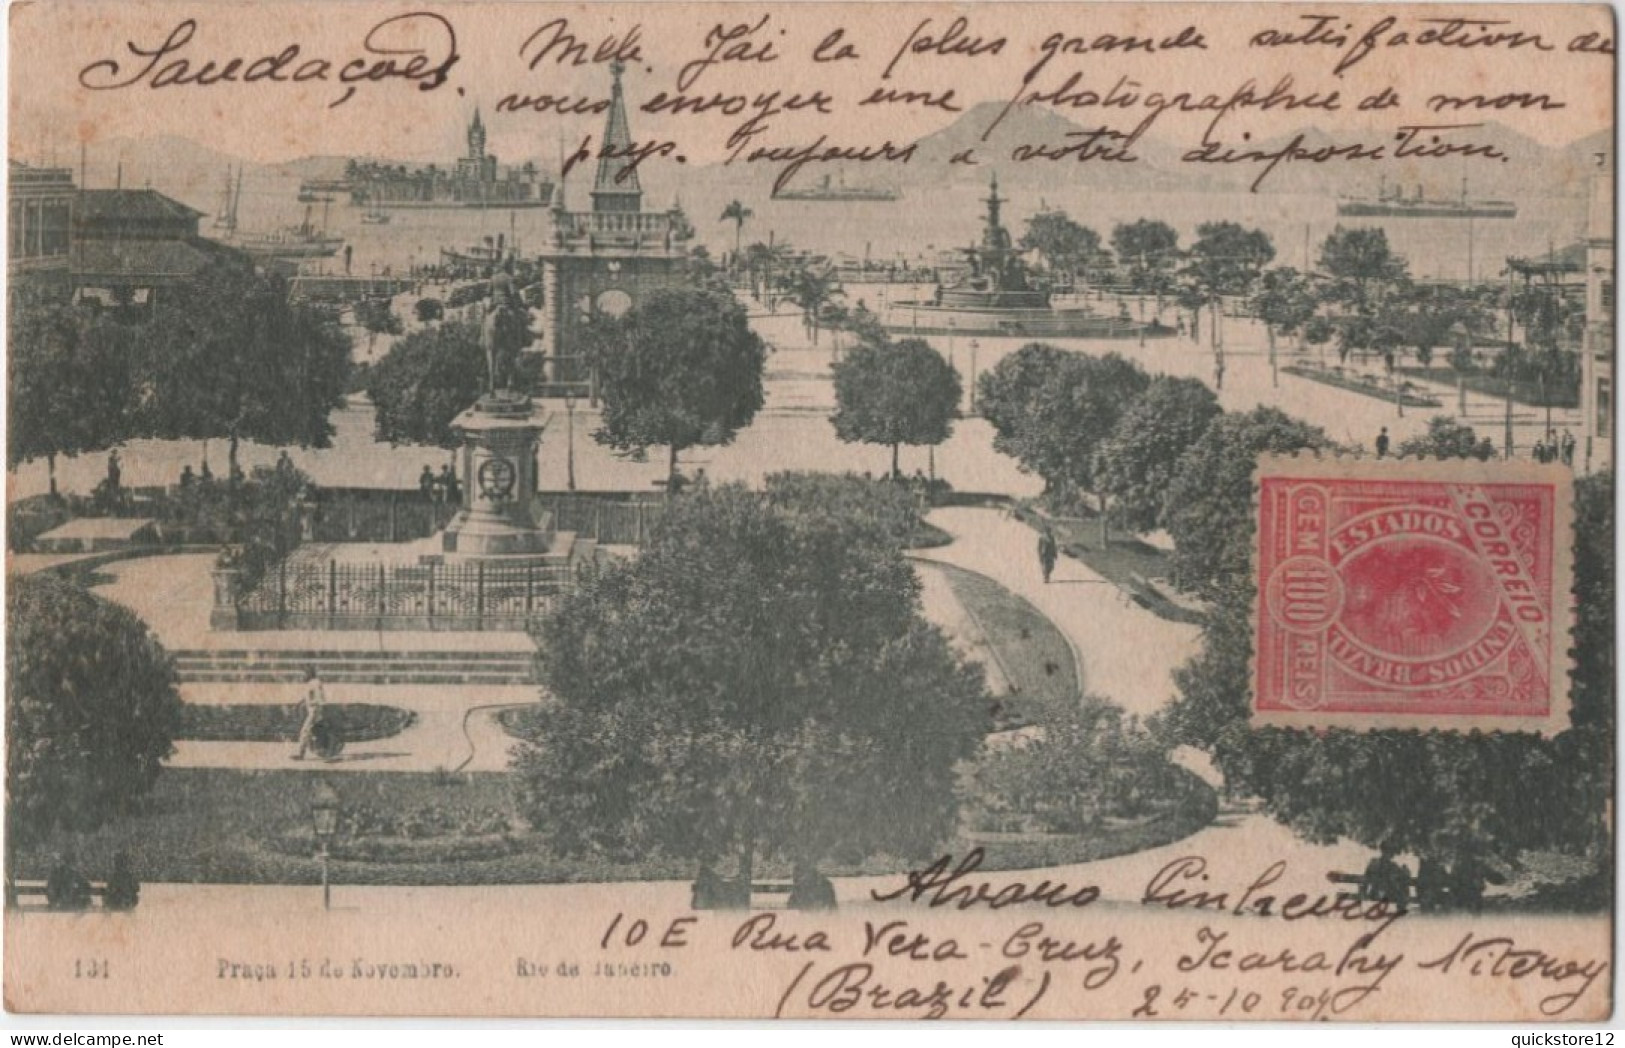 Saudações.
Mlle. J'ai la plus grande satisfaction de
vous envoyer une photographie de mon
pays. Toujours a votre disposition.
CORREIO
ESTADOS UNIDOS BRAZIL
CEM 100 REIS
Alvaro Pinheiro
10 E Rua Vera-Cruz, Icarahy Niteroy
(Brazil) 25-10 904
131 Praça 15 de Novembro. Rio de Janeiro.
quickstore12